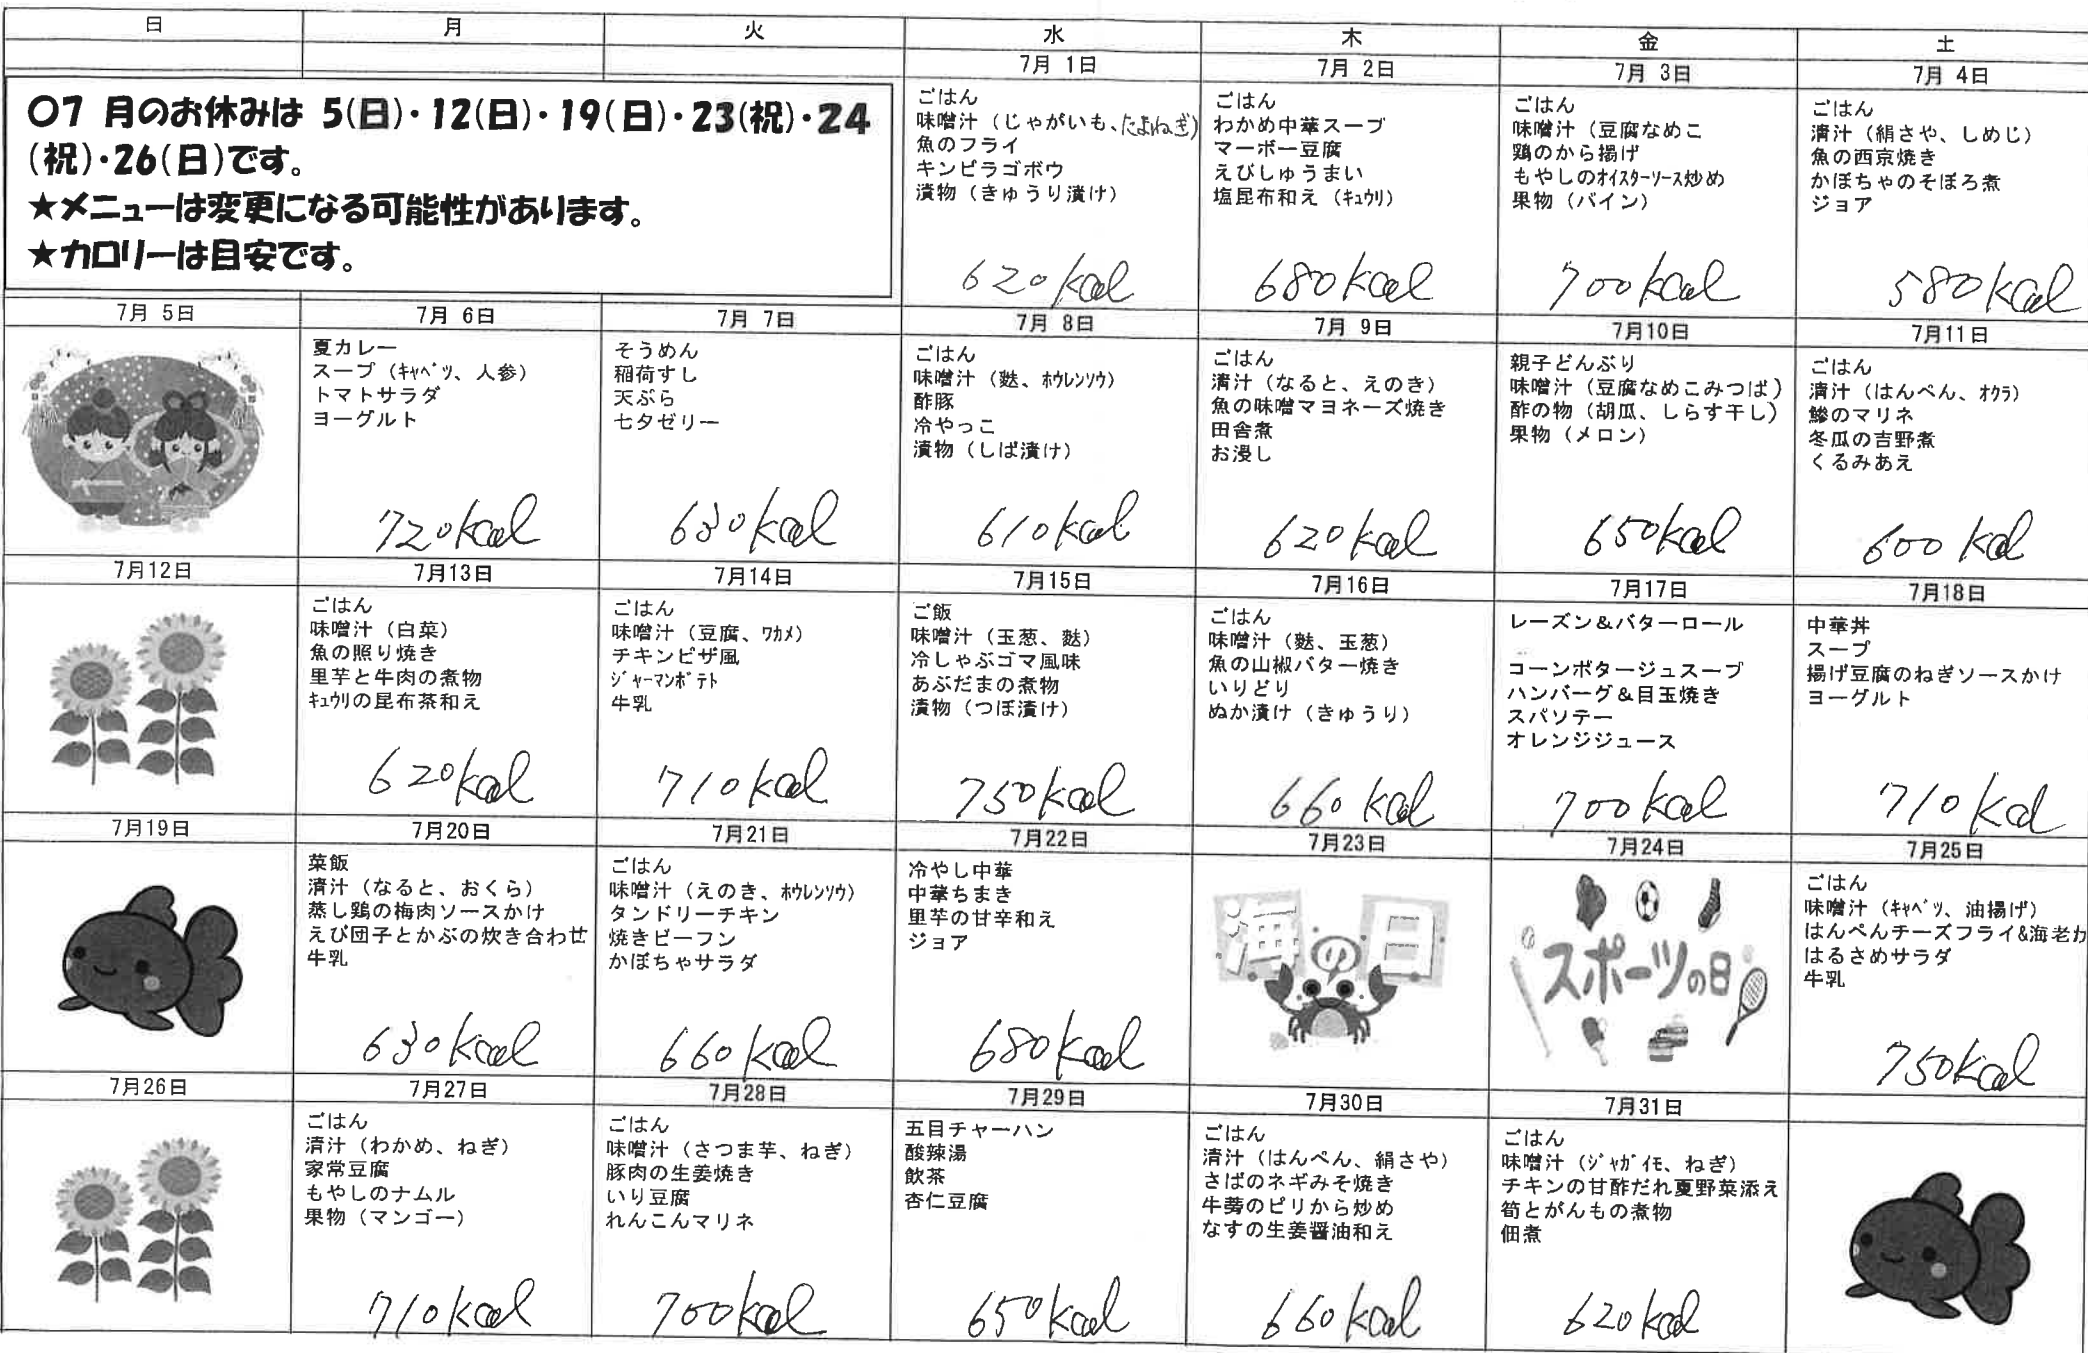 日 月 火 水 木 金 土
7月 1日 7月 2日 7月 3日 7月 4日
〇7 月のお休みは 5(日)・12(日)・19(日)・23(祝)・24
(祝)・26(日)です。
★メニューは変更になる可能性があります。
★カロリーは目安です。
ごはん
味噌汁（じゃがいも、たまねぎ）
魚のフライ
キンピラゴボウ
漬物（きゅうり漬け）
620kcal
ごはん
わかめ中華スープ
マーボー豆腐
えびしゅうまい
塩昆布和え（ｷｭｳﾘ）
680kcal
ごはん
味噌汁（豆腐なめこ
鶏のから揚げ
もやしのｵｲｽﾀｰｿｰｽ炒め
果物（パイン）
700kcal
ごはん
清汁（絹さや、しめじ）
魚の西京焼き
かぼちゃのそぼろ煮
ジョア
580kcal
7月 5日 7月 6日 7月 7日 7月 8日 7月 9日 7月10日 7月11日
夏カレー
スープ（ｷｬﾍﾞﾂ、人参）
トマトサラダ
ヨーグルト
720kcal
そうめん
稲荷すし
天ぷら
七タゼリー
630kcal
ごはん
味噌汁（麩、ﾎｳﾚﾝｿｳ）
酢豚
冷やっこ
漬物（しば漬け）
610kcal
ごはん
清汁（なると、えのき）
魚の味噌マヨネーズ焼き
田舎煮
お浸し
620kcal
親子どんぶり
味噌汁（豆腐なめこみつば）
酢の物（胡瓜、しらす干し）
果物（メロン）
650kcal
ごはん
清汁（はんぺん、ｵｸﾗ）
鯵のマリネ
冬瓜の吉野煮
くるみあえ
600 kcal
7月12日 7月13日 7月14日 7月15日 7月16日 7月17日 7月18日
ごはん
味噌汁（白菜）
魚の照り焼き
里芋と牛肉の煮物
ｷｭｳﾘの昆布茶和え
620kcal
ごはん
味噌汁（豆腐、ﾜｶﾒ）
チキンピザ風
ｼﾞｬｰﾏﾝﾎﾟﾃﾄ
牛乳
710kcal
ご飯
味噌汁（玉葱、麩）
冷しゃぶゴマ風味
あぶだまの煮物
漬物（つぼ漬け）
750kcal
ごはん
味噌汁（麩、玉葱）
魚の山椒バター焼き
いりどり
ぬか漬け（きゅうり）
660 kcal
レーズン＆バターロール
コーンポタージュスープ
ハンバーグ＆目玉焼き
スパソテー
オレンジジュース
700kcal
中華丼
スープ
揚げ豆腐のねぎソースかけ
ヨーグルト
710kcal
7月19日 7月20日 7月21日 7月22日 7月23日 7月24日 7月25日
菜飯
清汁（なると、おくら）
蒸し鶏の梅肉ソースかけ
えび団子とかぶの炊き合わせ
牛乳
630kcal
ごはん
味噌汁（えのき、ﾎｳﾚﾝｿｳ）
タンドリーチキン
焼きビーフン
かぼちゃサラダ
660kcal
冷やし中華
中華ちまき
里芋の甘辛和え
ジョア
680kcal
海の日
スポーツの日
ごはん
味噌汁（ｷｬﾍﾞﾂ、油揚げ）
はんぺんチーズフライ&海老カ
はるさめサラダ
牛乳
750kcal
7月26日 7月27日 7月28日 7月29日 7月30日 7月31日
ごはん
清汁（わかめ、ねぎ）
家常豆腐
もやしのナムル
果物（マンゴー）
710kcal
ごはん
味噌汁（さつま芋、ねぎ）
豚肉の生姜焼き
いり豆腐
れんこんマリネ
700kcal
五目チャーハン
酸辣湯
飲茶
杏仁豆腐
650kcal
ごはん
清汁（はんぺん、絹さや）
さばのネギみそ焼き
牛蒡のピリから炒め
なすの生姜醤油和え
660kcal
ごはん
味噌汁（ｼﾞｬｶﾞｲﾓ、ねぎ）
チキンの甘酢だれ夏野菜添え
筍とがんもの煮物
佃煮
620kcal